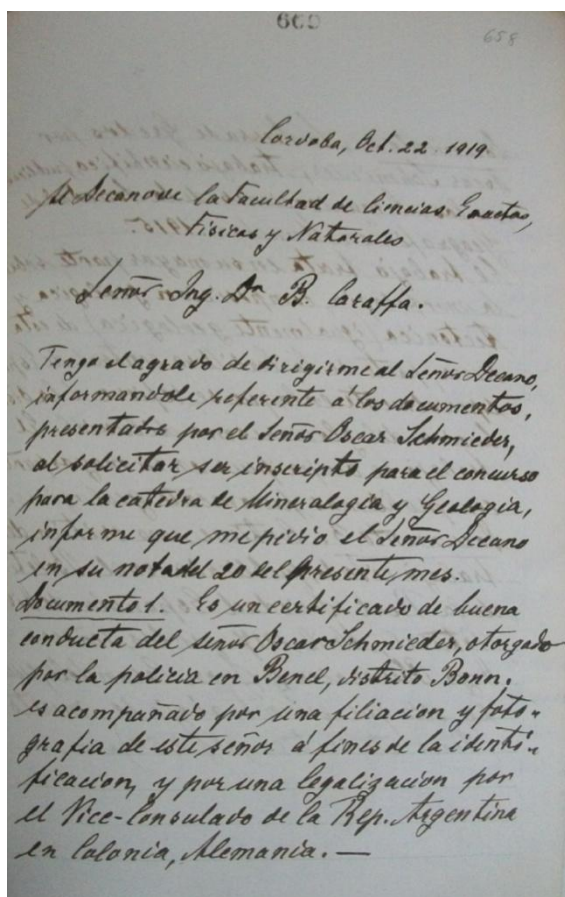 669
658
Cordoba, Oct. 22. 1919.
Al Decano de la Facultad de Ciencias Exactas,
Fisicas y Naturales
Señor Ing. Dn B. Caraffa.
Tengo el agrado de dirigirme al Señor Decano,
informandole referente á los documentos,
presentados por el Señor Oscar Schmieder,
al solicitar ser inscripto para el concurso
para la catedra de Mineralogia y Geologia,
informe que me pidio el Señor Decano
en su nota del 20 del presente mes.
Documento 1. Es un certificado de buena
conducta del señor Oscar Schmieder, otorgado
por la policia en Benel, distrito Bonn.
es acompañado por una filiacion y foto-
grafia de este señor á fines de la identi-
ficacion, y por una legalizacion por
el Vice-Consulado de la Rep. Argentina
en Colonia, Alemania. —